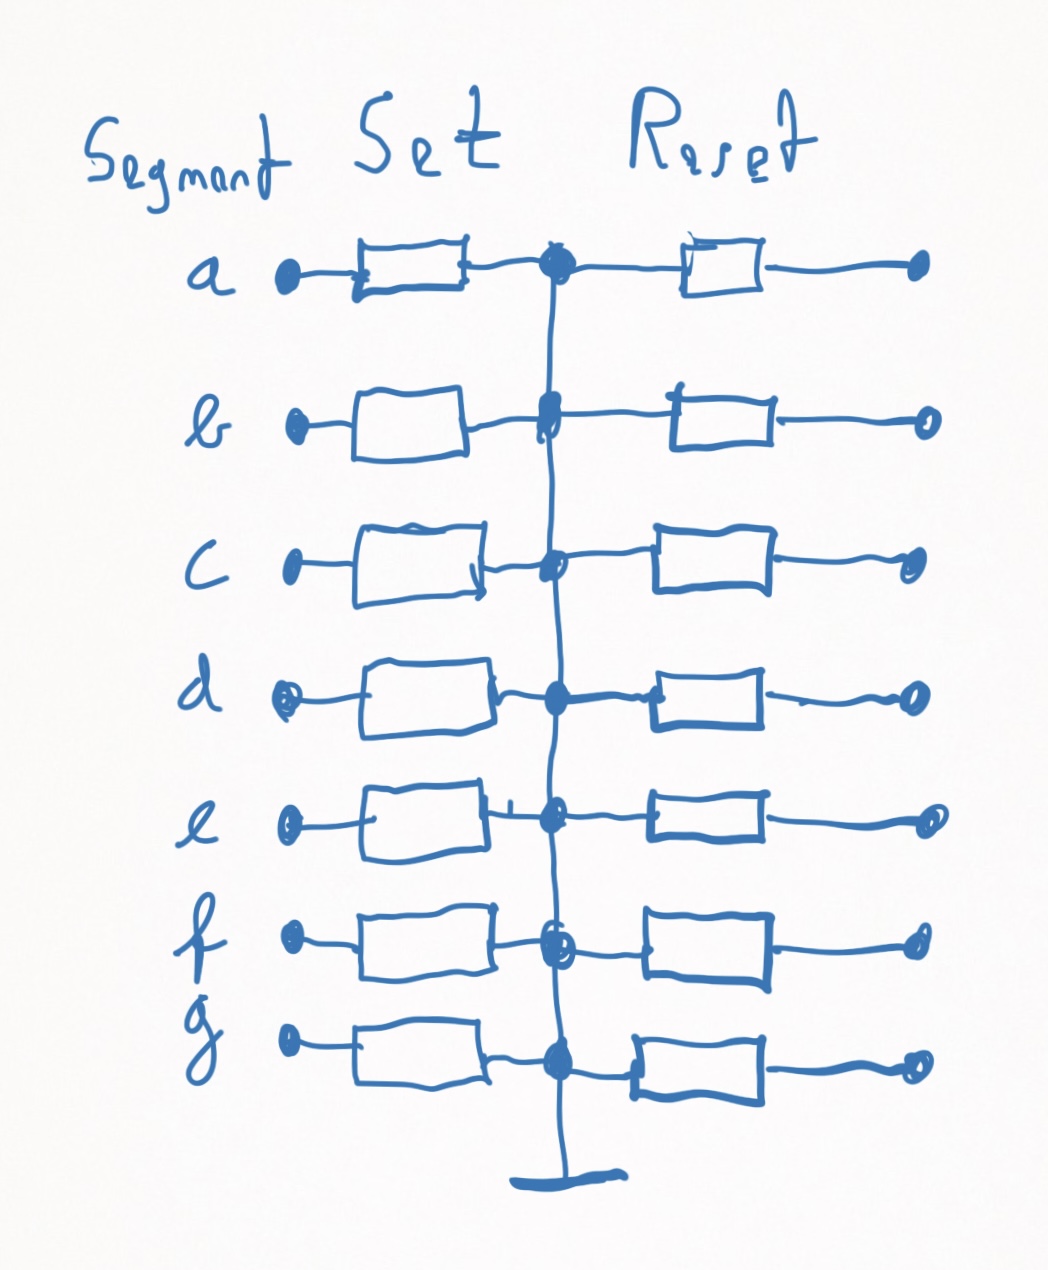 Segment Set Reset
a
b
c
d
e
f
g